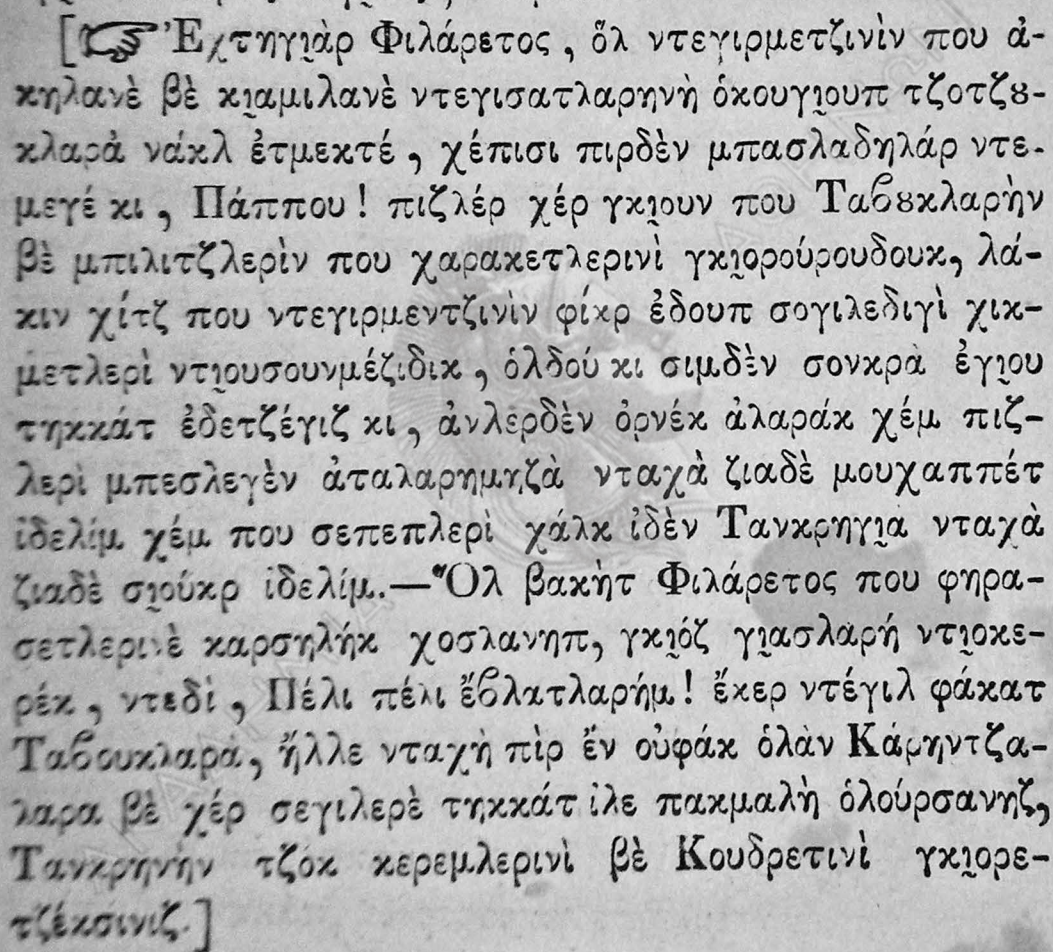 [☞ Ἐχτηγι̲ὰρ Φιλάρετος, ὅλ ντεγιρμετζινὶν που ἀ-
κηλανὲ βὲ κι̲αμιλανὲ ντεγισατλαρηνὴ ὁκουγι̲ουπ τζοτζȣ-
κλαρὰ νάκλ ἐτμεκτέ, χέπισι πιρδὲν μπασλαδηλάρ ντε-
μεγέ κι, Πάππου! πιζλέρ χέρ γκι̲ουν που Ταβȣκλαρὴν
βὲ μπιλιτζλερὶν που χαρακετλερινὶ γκι̲ορούρουδουκ, λά-
κιν χίτζ που ντεγιρμεντζινὶν φίκρ ἐδουπ σογιλεδιγὶ χικ-
μετλερὶ ντι̲ουσουνμέζιδικ, ὁλδού κι σιμδὲν σονκρὰ ἐγι̲ου
τηκκάτ ἐδετζέγιζ κι, ἀνλερδὲν ὀρνέκ ἀλαράκ χέμ πιζ-
λερὶ μπεσλεγὲν ἀταλαρημηζὰ νταχὰ ζιαδὲ μουχαππέτ
ἰδελίμ χέμ που σεπεπλερὶ χάλκ ἰδὲν Τανκρηγι̲α νταχὰ
ζιαδὲ σι̲ούκρ ἰδελίμ.—Ὅλ βακὴτ Φιλάρετος που φηρα-
σετλερινὲ καρσηλήκ χοσλανηπ, γκι̲όζ γι̲ασλαρή ντι̲οκε-
ρέκ, ντεδὶ, Πέλι πέλι ἔβλατλαρήμ! ἔκερ ντέγιλ φάκατ
Ταβουκλαρά, ἤλλε νταχὴ πὶρ ἔν οὐφάκ ὁλὰν Κάρηντζα-
λαρα βὲ χέρ σεγιλερὲ τηκκάτ ἰλε πακμαλὴ ὁλούρσανηζ,
Τανκρηνὴν τζόκ κερεμλερινὶ βὲ Κουδρετινὶ γκι̲ορε-
τζέκσινιζ.]